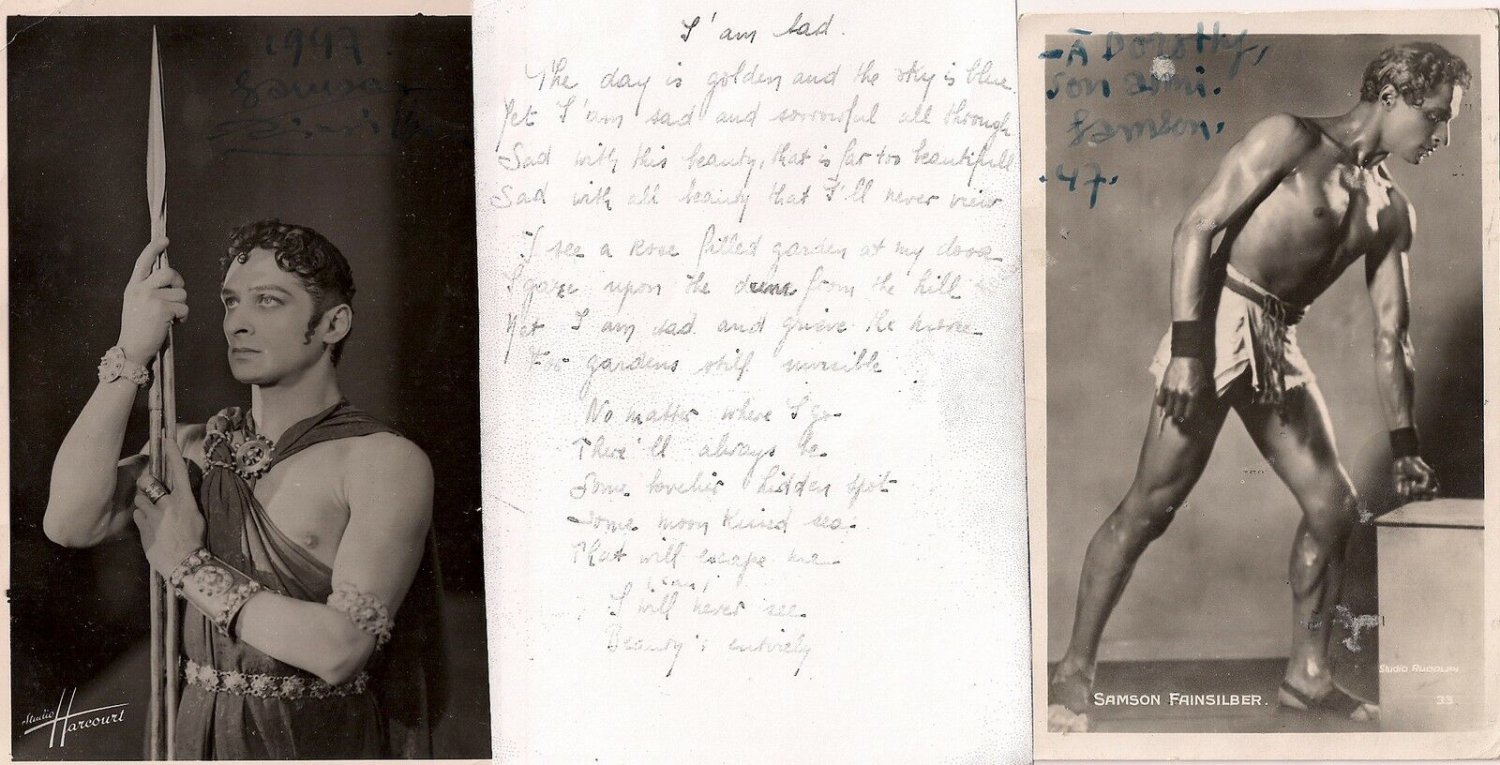 1947
Samson
Studio Harcourt
I'am sad.
The day is golden and the sky is blue
Yet I'am sad and sorrowful all through
Sad with this beauty, that is far too beautifull
Sad with all beauty that I'll never view
I see a Rose filled garden at my door
I gaze upon the dune from the hill
Yet I am sad and grieve the more
For gardens still invisible
No matter where I go
There'll always be
Some lovelier hidden spot
Some moon kissed sea
That will escape me
I will never see
Beauty's entirely
-À Dorothy,
son ami.
Samson.
.47.
Studio Rudolph
SAMSON FAINSILBER.
33